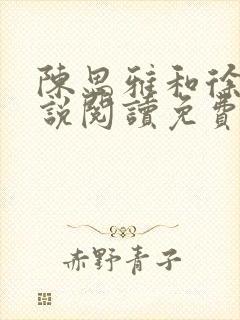 陳思雅和徐
說閱讀免費
赤野青子